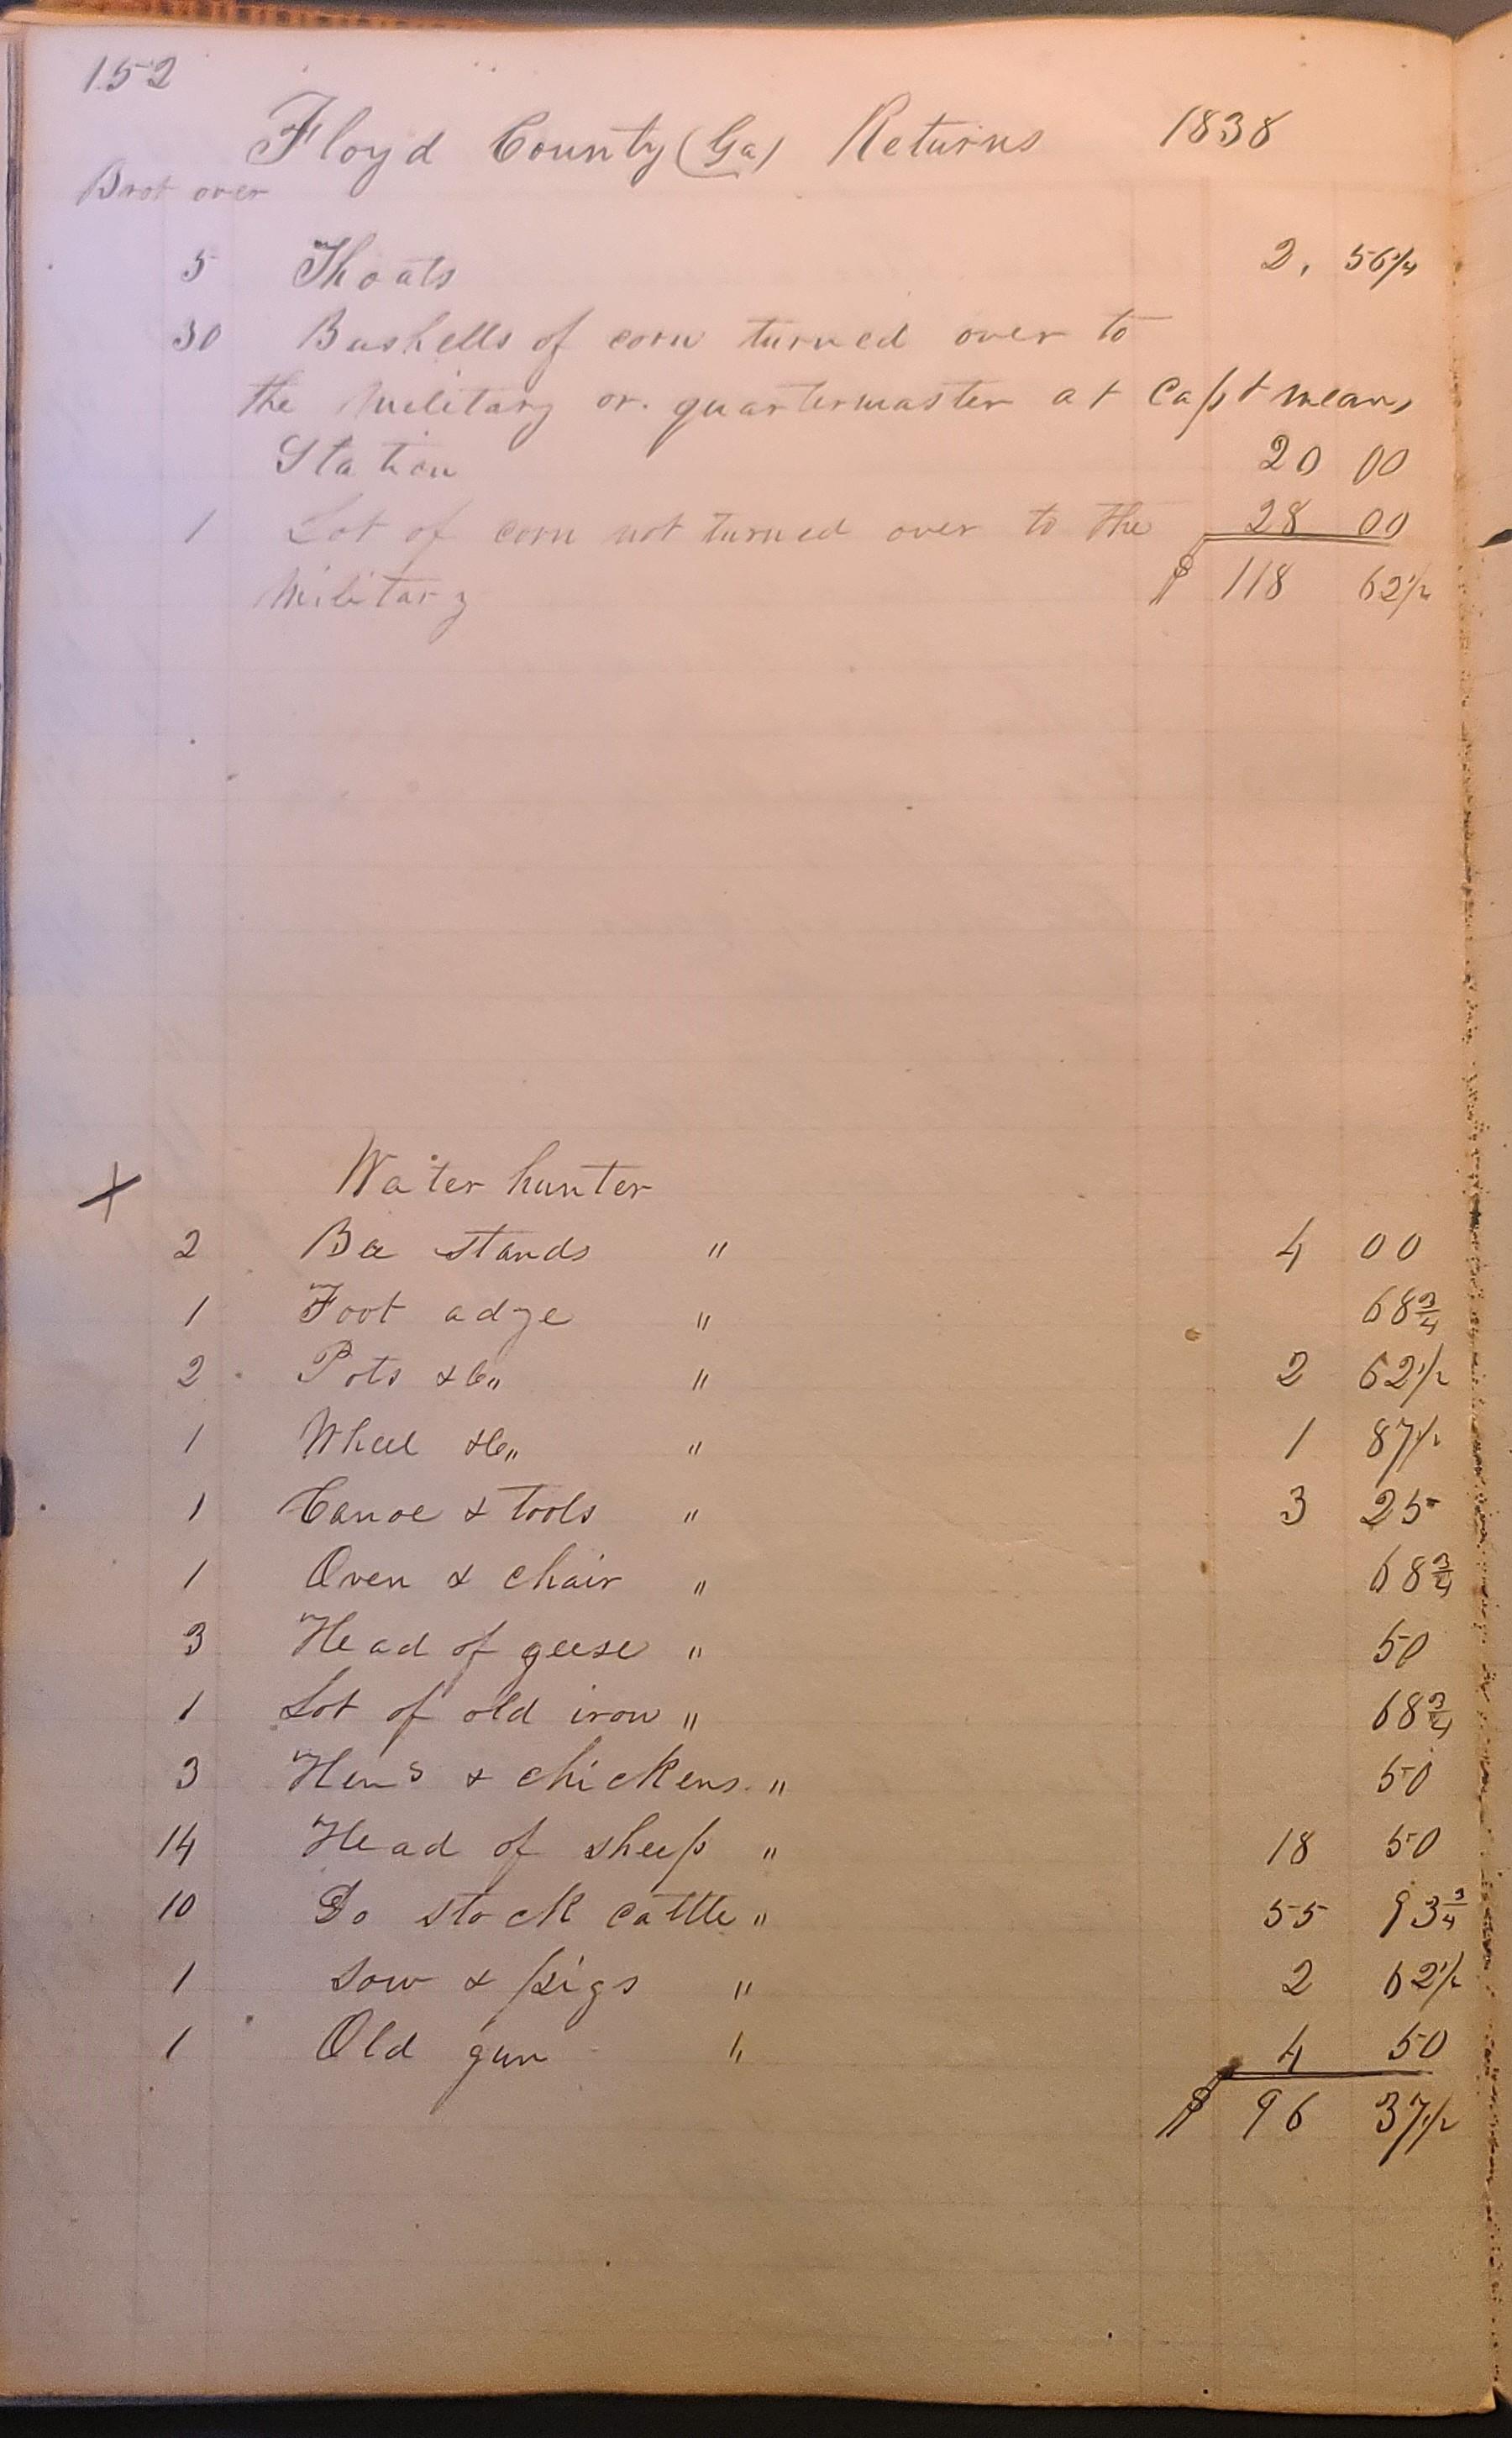 152
Floyd County (Ga) Returns 1838
Brot over
5 Shoats 2. 56 1/4
30 Bushells of corn turned over to
the Military or quartermaster at Capt means
Station 20 00
1 Lot of corn not turned over to the 28 00
Military $ 118 62 1/2
X Water hunter
2 Bee stands " 4 00
1 Foot adze " 68 3/4
2 Pots &c " 2 62 1/2
1 Wheel &c " 1 87 1/2
1 Canoe & tools " 3 25
1 Oven & chair " 68 3/4
3 Head of geese " 50
1 Lot of old iron " 68 3/4
3 Hens & chickens " 50
14 Head of sheep " 18 50
10 Do stock cattle " 55 93 3/4
1 Sow & pigs " 2 62 1/2
1 Old gun " 4 50
$ 96 37 1/2